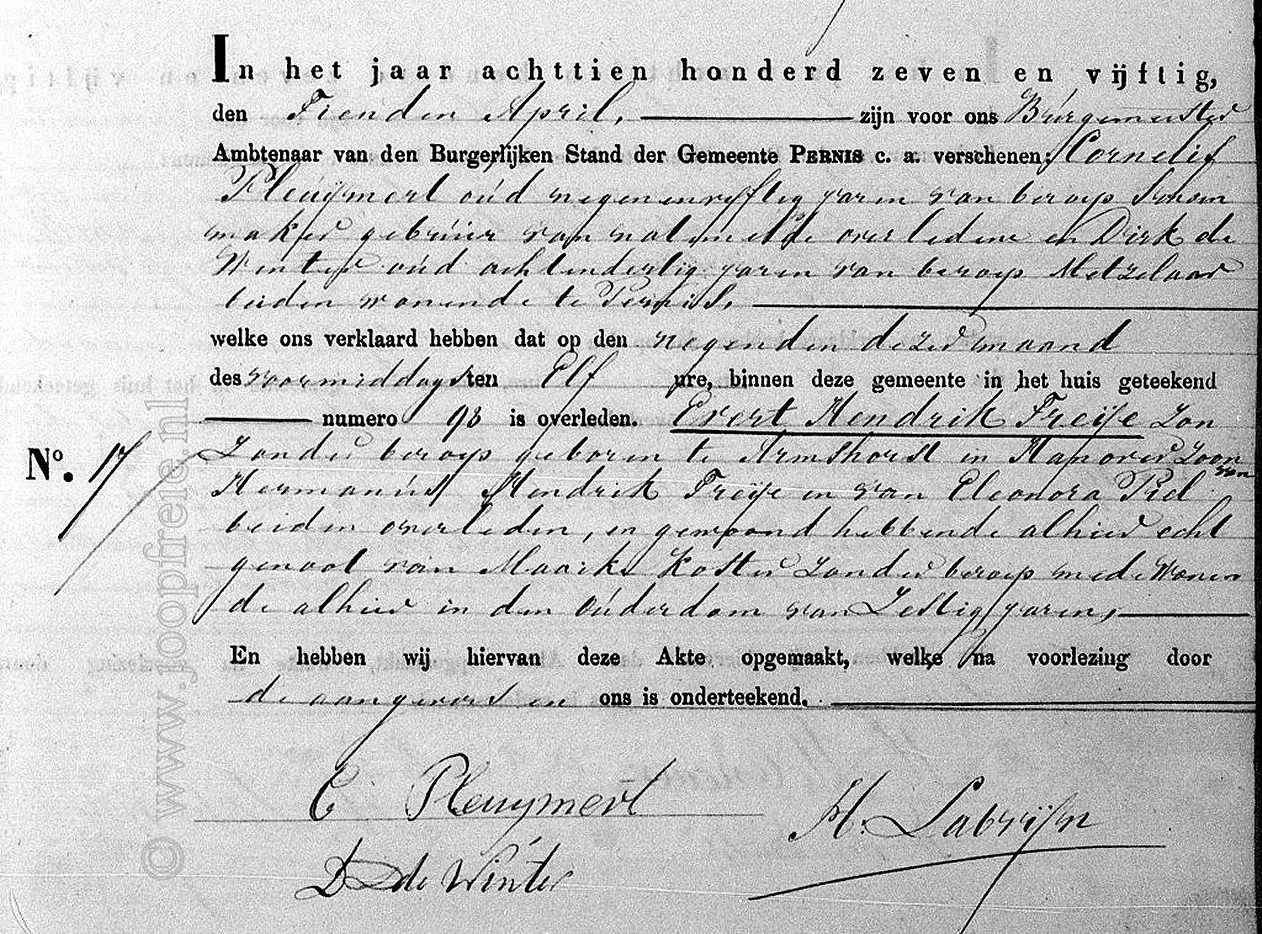 In het jaar achttien honderd zeven en vijftig,
den Tienden April, zijn voor ons Burgemeester
Ambtenaar van den Burgerlijken Stand der Gemeente PERNIS c. a. verschenen; Cornelis
Pleuijmert oud negenenvijftig jaren van beroep Schoen
maker gebuur van natemelde overledene en Dirk de
Winter oud achtendertig jaren van beroep Metzelaar
beiden wonende te Pernis,
welke ons verklaard hebben dat op den negenden dezer maand
des voormiddags ten Elf ure, binnen deze gemeente in het huis geteekend
numero 98 is overleden. Evert Hendrik Freije Zon
No. 17
Zonder beroep geboren te Armshorst in Hanover Zoon van
Hermanus Hendrik Freije en van Eleonora Piel
beiden overleden, en gewoond hebbende alhier echt
genoot van Maaike Koster Zonder beroep mede Wonen
de alhier in den Ouderdom van Zestig jaren,
En hebben wij hiervan deze Akte opgemaakt, welke na voorlezing door
de aangevers en ons is onderteekend.
C Pleuymert
H. Labrijn
D de Winter
© www.joopfreie.nl